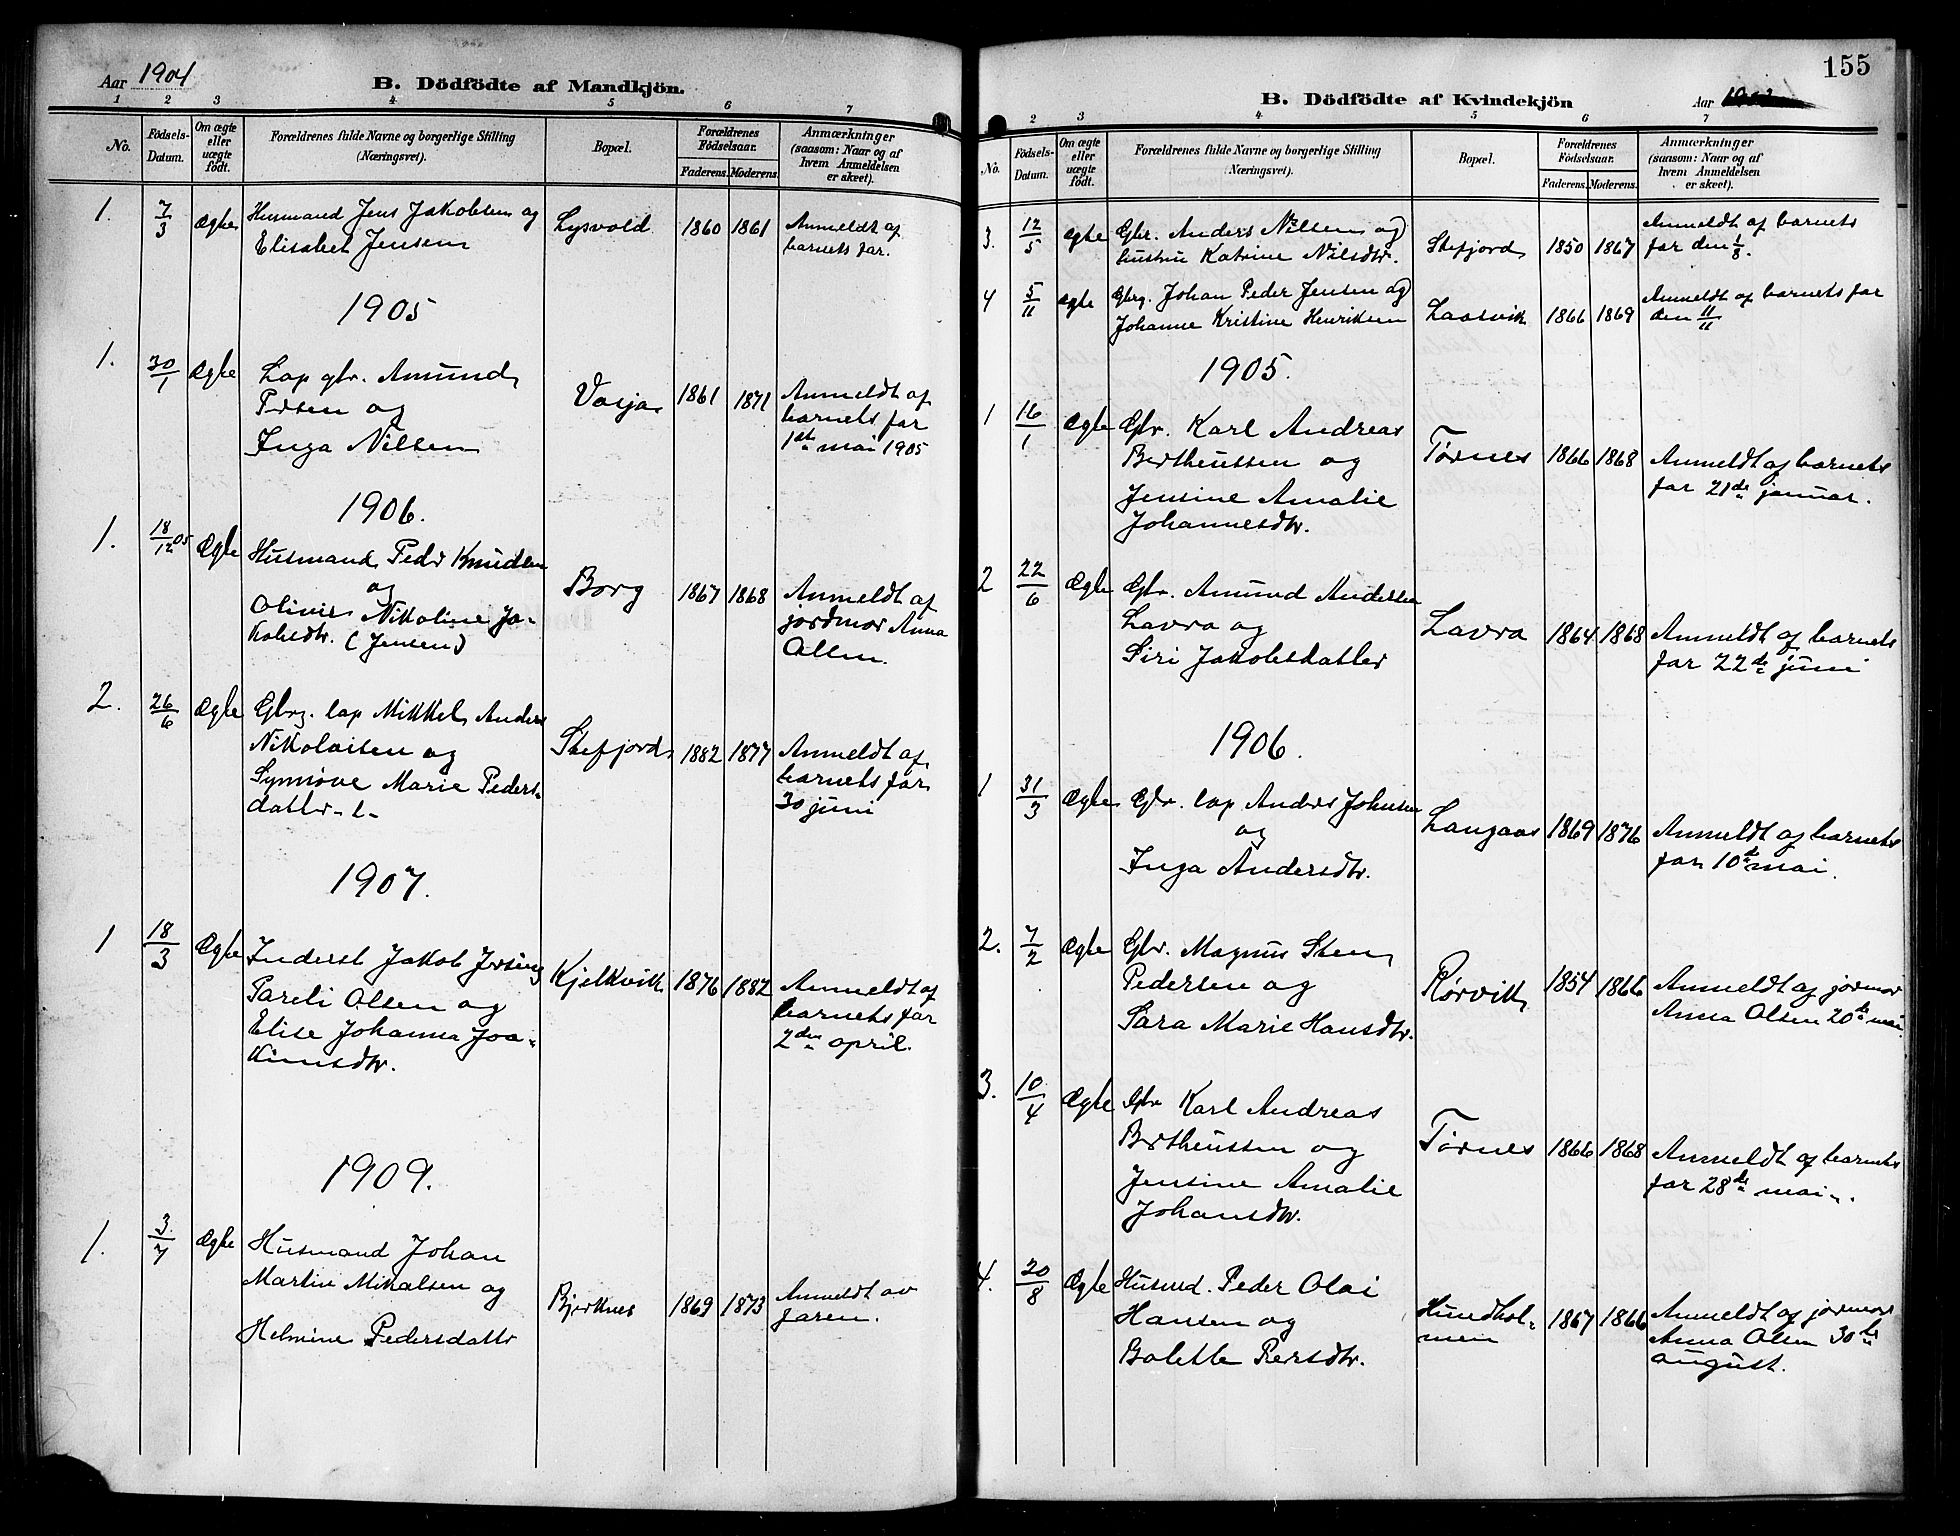 Aar 1904
B. Dödfödte af Mandkjön.
1 2 3 4 5 6 7
No.
Födsels-Datum.
Om ægte eller uægte födt.
Forældrenes fulde Navne og borgerlige Stilling (Næringsvei).
Bopæl.
Forældrenes Födselsaar.
Faderens. Moderens.
Anmærkninger (saasom: Naar og af hvem Anmeldelsen er skeet).
1. 7/3 Ægte Husmand Jens Jakobsen og Lysvold 1860 1861 Anmeldt af
Elisabet Jensen barnets far.
1905
1. 30/1 Ægte Lap gbr. Amund Vasja 1861 1871 Anmeldt af
Prsen og barnets far
Inga Nilsen 1ste mai 1905
1906.
1. 18/12 05 Ægte Husmand Peder Knudsen Borg 1867 1868 Anmeldt af
og jordmor Anna
Nikoline Ja- Olsen.
kobsdtr. (Jensen)
2. 26/6 Ægte Gbrg. lap Mikkel Anders Stefjord 1882 1877 Anmeldt af
Nikolaisen og barnets far
Synnöve Marie Peders- 30 juni
datter
1907.
1 18/3 Ægte Inderst Jakob Kjelkvik 1876 1882 Anmeldt af
Pareli Olsen og barnets far
Elise Johanna Joa- 2den april.
kimsdtr.
1909.
1. 3/7 Ægte Husmand Johan Bjerknes 1869 1873 Anmeldt av
Martin Mikalsen og faren.
Helmine Pedersdattr
155
B. Dödfödte af Kvindekjön
Aar
2 3 4 5 6 7
No.
Födsels-Datum.
Om ægte eller uægte födt.
Forældrenes fulde Navne og borgerlige Stilling (Næringsvei).
Bopæl.
Forældrenes Födselsaar.
Faderens. Moderens.
Anmærkninger (saasom: Naar og af hvem Anmeldelsen er skeet).
3. 12/5 Ægte Gbr. Anders Nilsen og Stefjord 1850 1867 Anmeldt af barnets
hustru Katrine Nilsdtr. far den 1/8.
4 5/11 Ægte Gbrg. Johan Peder Jensen og Laasvik 1866 1869 Anmeldt af barnets far
Johanne Kristine Henriksen den 11/11
1905.
1 16/1 Ægte Gbr. Karl Andreas Tørnes 1866 1868 Anmeldt af barnets
Bertheussen og far 21de januar.
Jensine Amalie
Johannesdtr.
2 22/6 Ægte Gbr. Amund Andersen Lavra 1864 1868 Anmeldt af barnets
Lavra og far 22de juni
Siri Jakobsdatter
1906.
1 31/3 Ægte Gbr. lap Anders Johnsen Langaas 1869 1876 Anmeldt af barnets
og far 10de mai.
Inga Andersdtr.
2. 7/2 Ægte Gbr. Magnus Sten Rørvik 1854 1866 Anmeldt af jormor
Pedersen og Anna Olsen 20de mai
Sara Marie Hansdtr.
3. 10/4 Ægte Gbr Karl Andreas Tørnes 1866 1868 Anmeldt af barnets
Bertheussen og far 28de mai.
Jensine Amalie
Johansdtr.
4. 20/8 Ægte Husmd. Peder Olai Hundhol- 1867 1866 Anmeldt af jormor
Hansen og men Anna Olsen 30te
Bolette Persdtr. august.